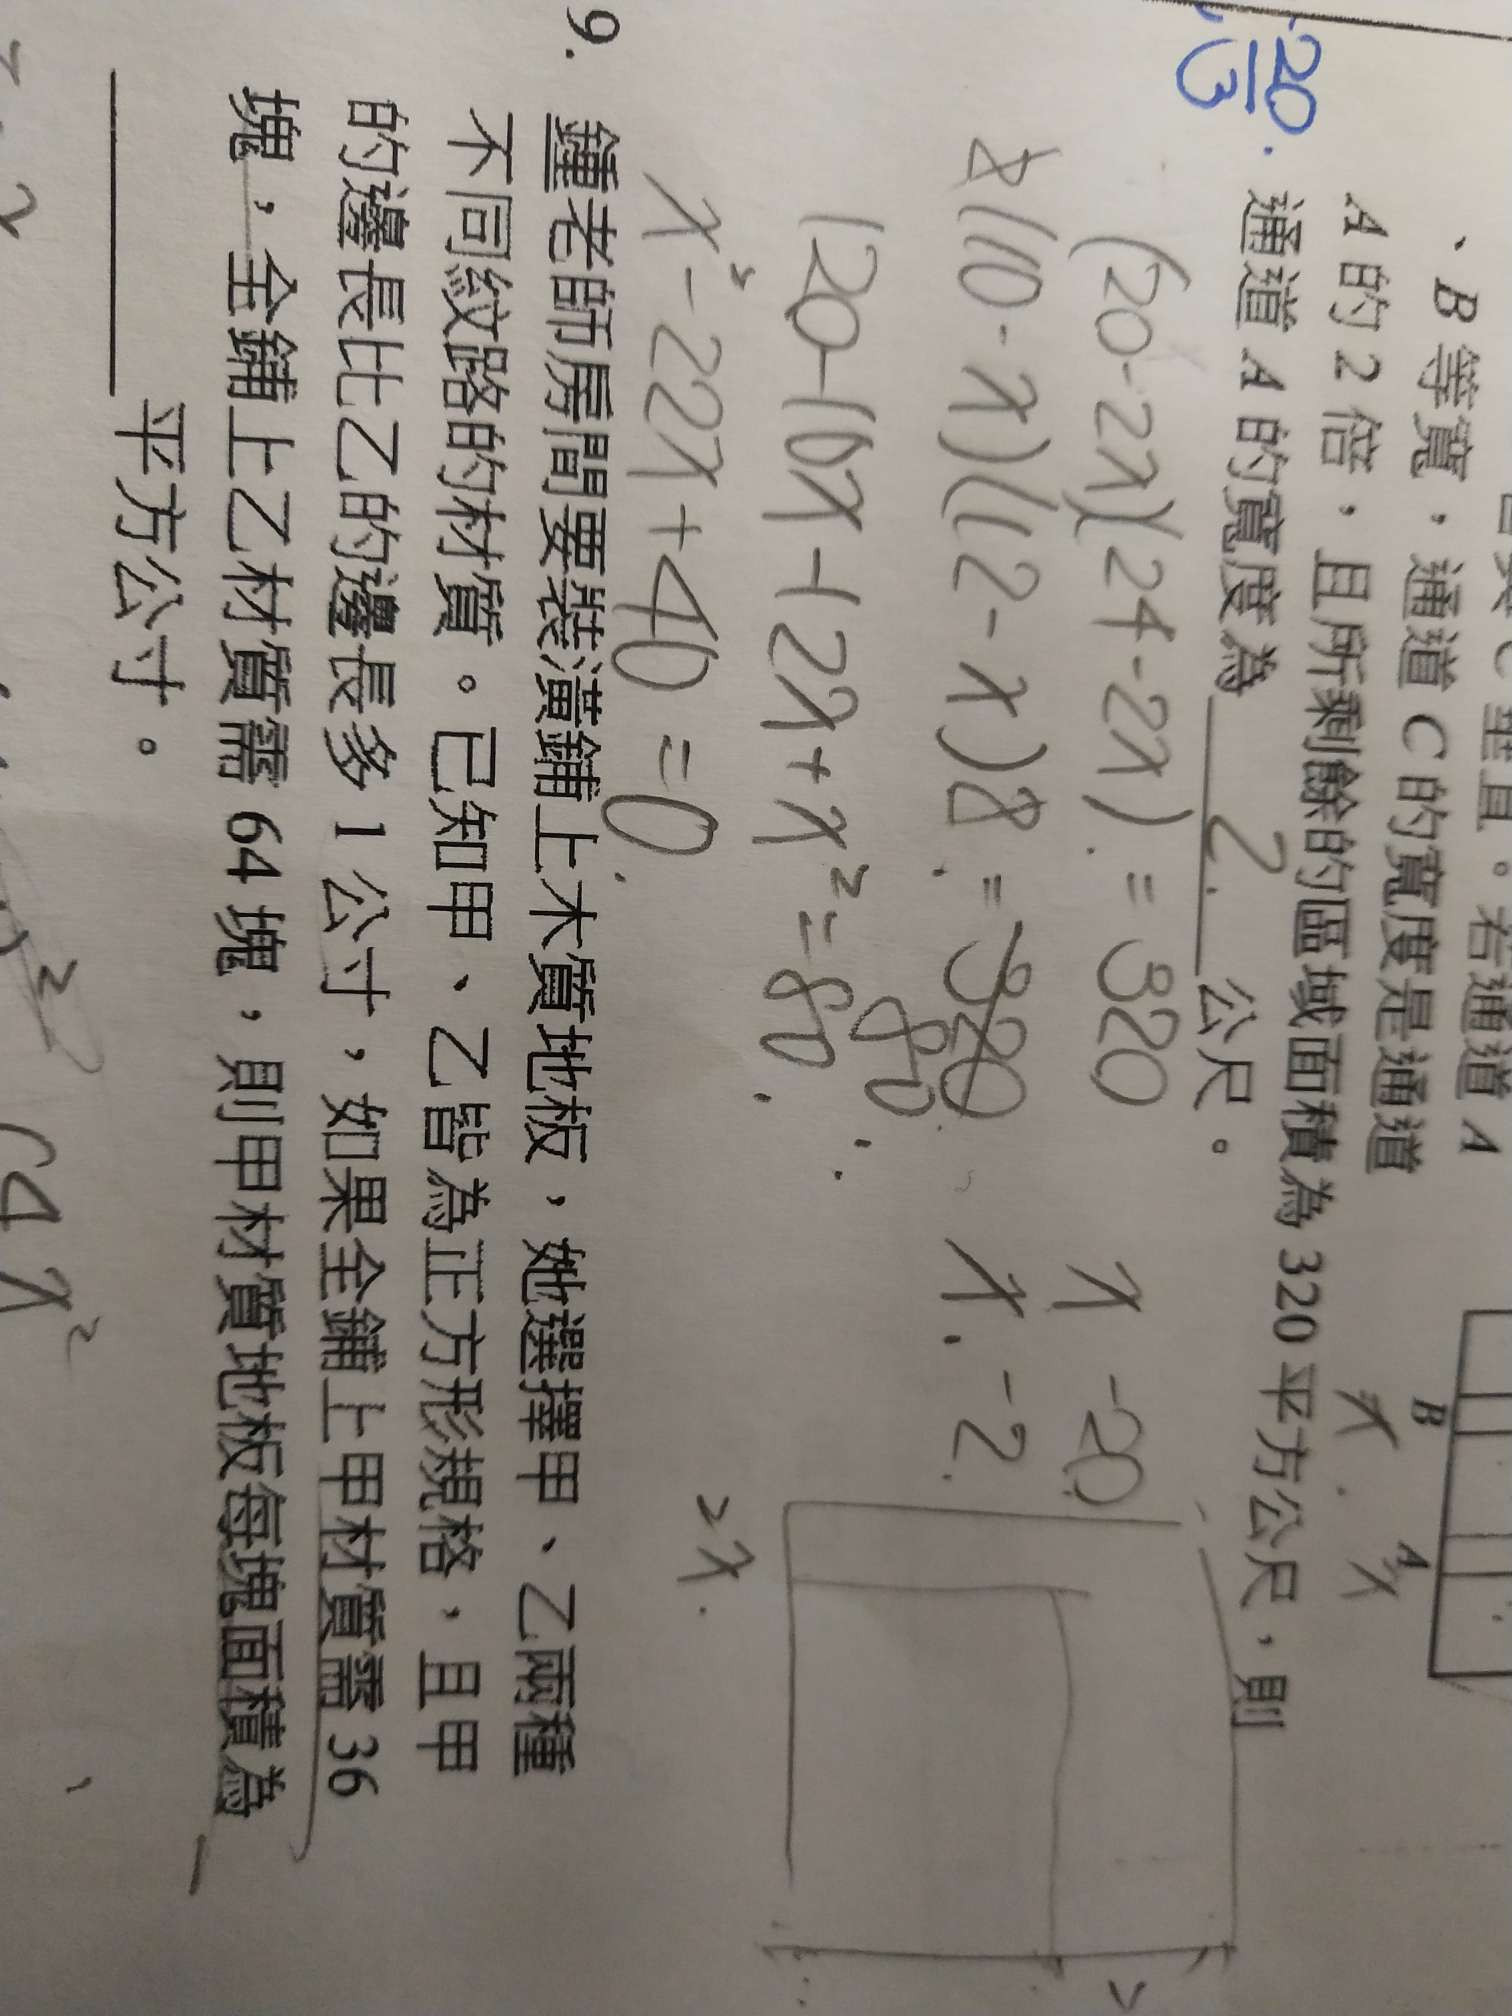 、B 等寬，通道 C 的寬度是通道
A 的 2 倍，且所剩餘的區域面積為 320 平方公尺，則
通道 A 的寬度為 2. 公尺。
20
3
B
A
x
x
(20-2x)(24-2x) = 320
(10-x)(12-x) = 320
80
120-10x-12x+x²=80
x²-22x+40=0
x -20
x -2
2x
9. 鍾老師房間要裝潢鋪上木質地板，她選擇甲、乙兩種
不同紋路的材質。已知甲、乙皆為正方形規格，且甲
的邊長比乙的邊長多 1 公寸，如果全鋪上甲材質需 36
塊，全鋪上乙材質需 64 塊，則甲材質地板每塊面積為
平方公寸。